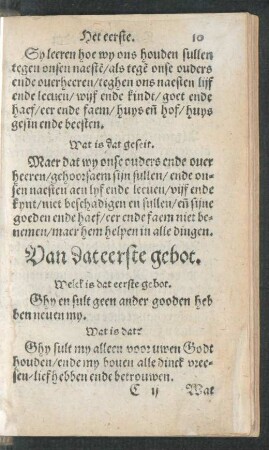 Het eerste. 10
Sy leeren hoe wy ons houden sullen
tegen onsen naestē/als tegē onse ouders
ende ouerheeren/teghen ons naesten lijf
ende leeuen/wijf ende kindt/goet ende
haef/eer ende faem/huys eñ hof/huys
gesin ende beesten.
Wat is dat geseit.
Maer dat wy onse ouders ende ouer
heeren/gehoorsaem sijn sullen/ende on-
sen naesten aen lyf ende leeuen/vijf ende
kynt/niet beschadigen en sullen/eñ sijne
goeden ende haef/eer ende faem niet be-
nemen/maer hem helpen in alle dingen.
Van dat eerste gebot.
Welck is dat eerste gebot.
Ghy en sult geen ander gooden heb
ben neuen my.
Wat is dat?
Ghy sult my alleen voor uwen Godt
houden/ende my bouen alle dinck vree-
sen/lief hebben ende betrouwen.
C ij Wat